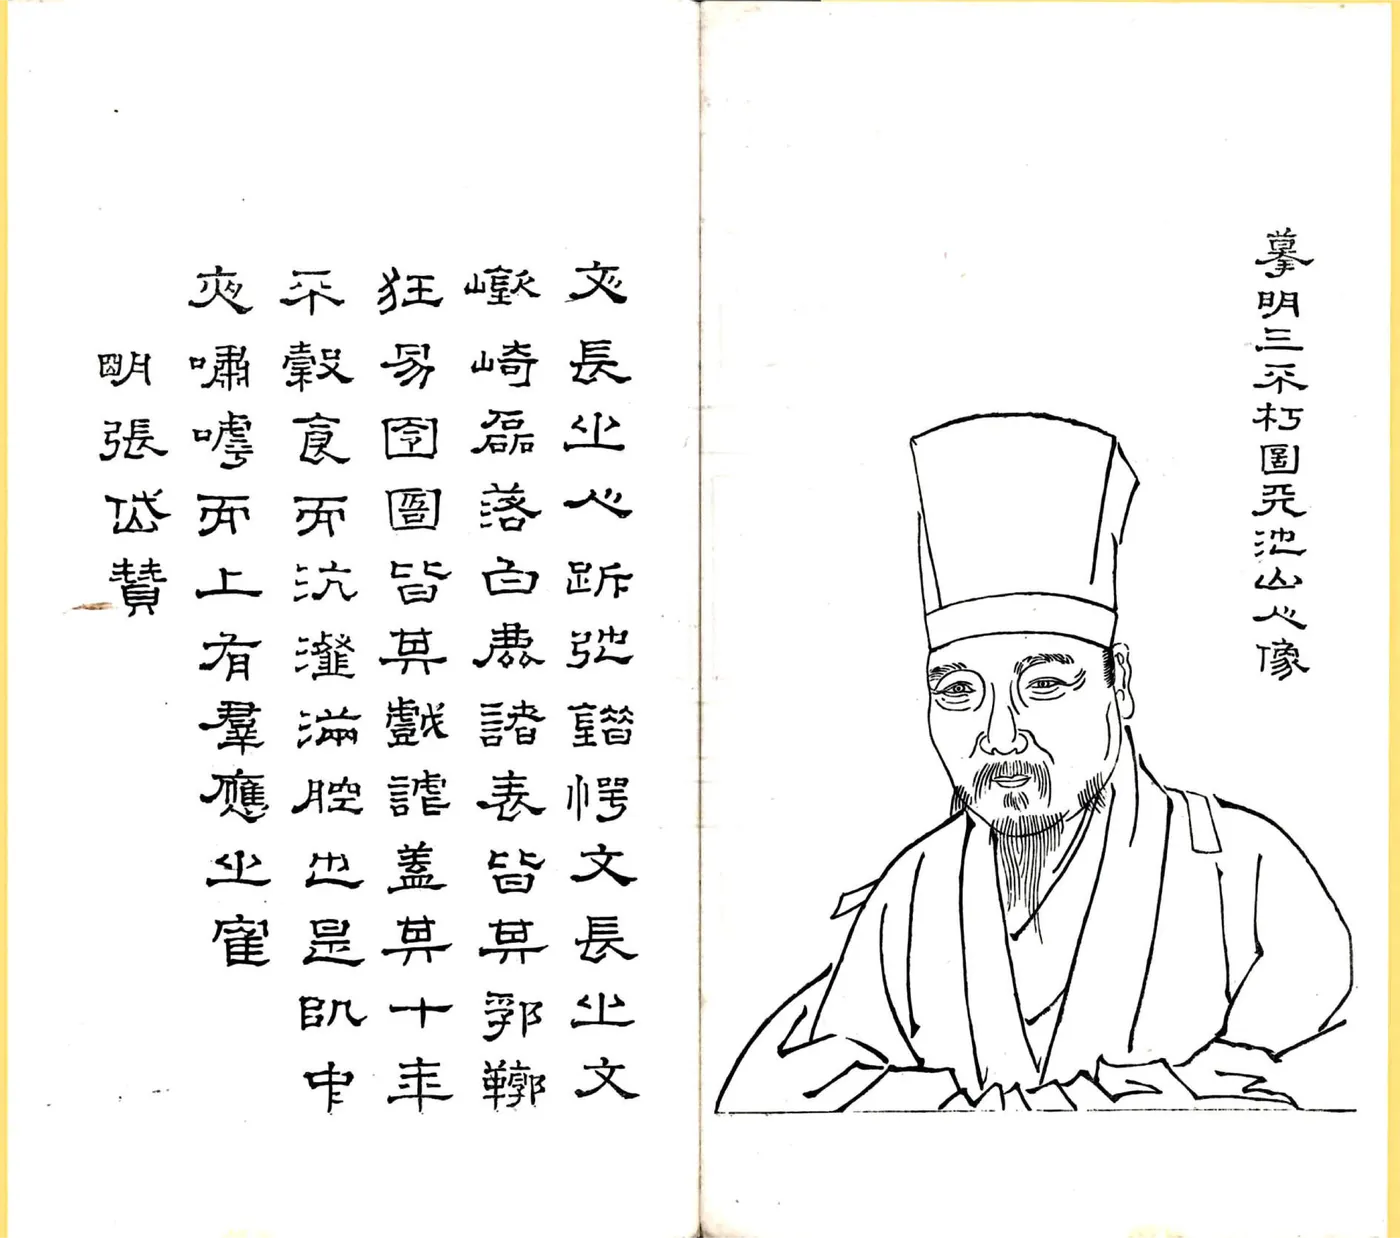 摹明三不朽圖天池山人像
文長之人跅弛譖愕文長之文
嶔崎磊落白鹿諸表皆其郛鞹
狂易囹圄皆其戲謔蓋其十年
不穀食而沆瀣滿腔也是以中
夜嘯嘑而上有羣應之寉
明張岱贊